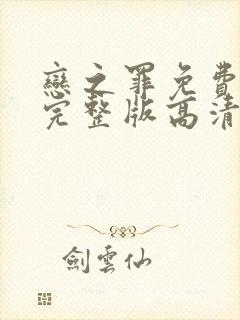 戀之罪免費
完整版高清
劍雲仙